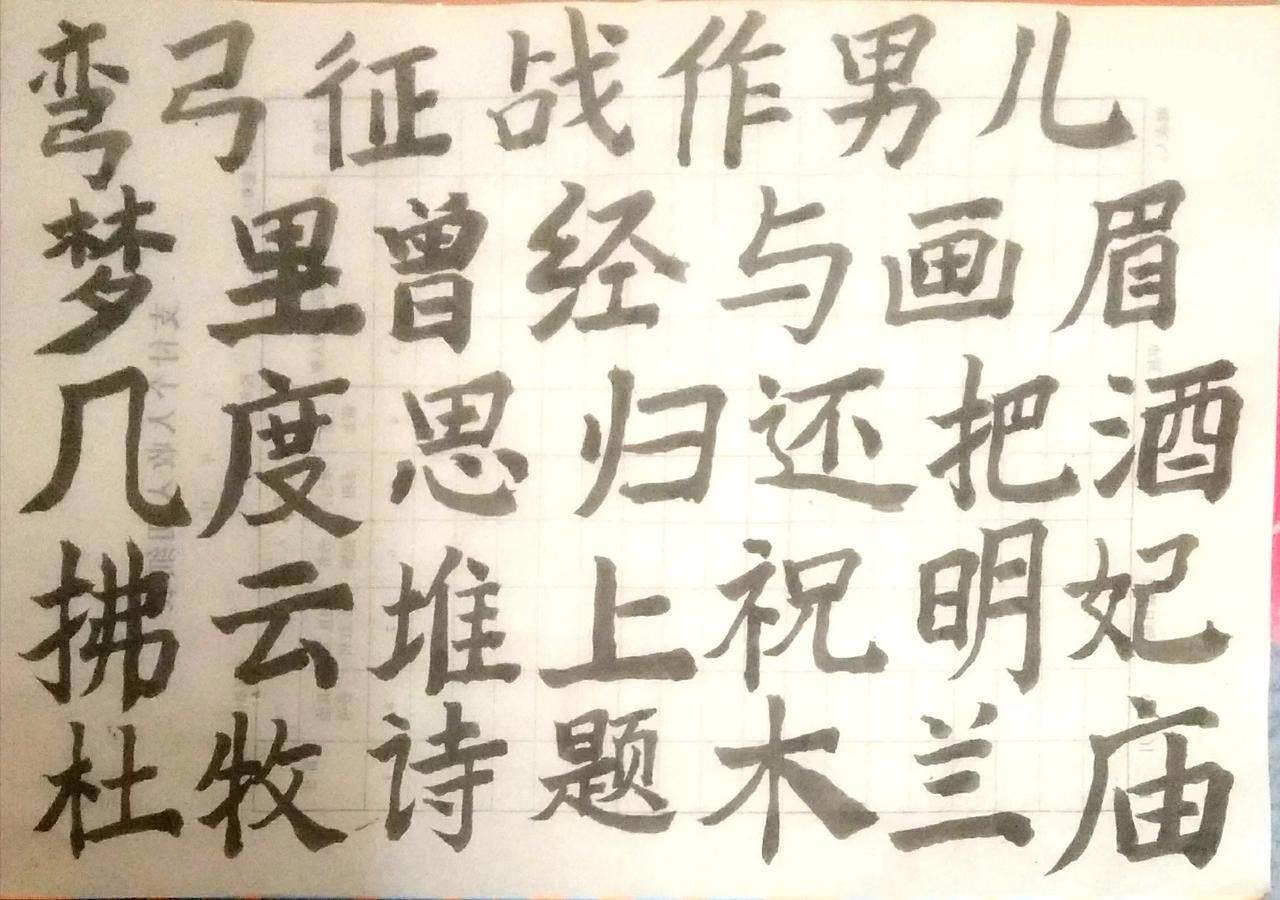 弯弓征战作男儿
梦里曾经与画眉
几度思归还把酒
拂云堆上祝明妃
杜牧诗题木兰庙